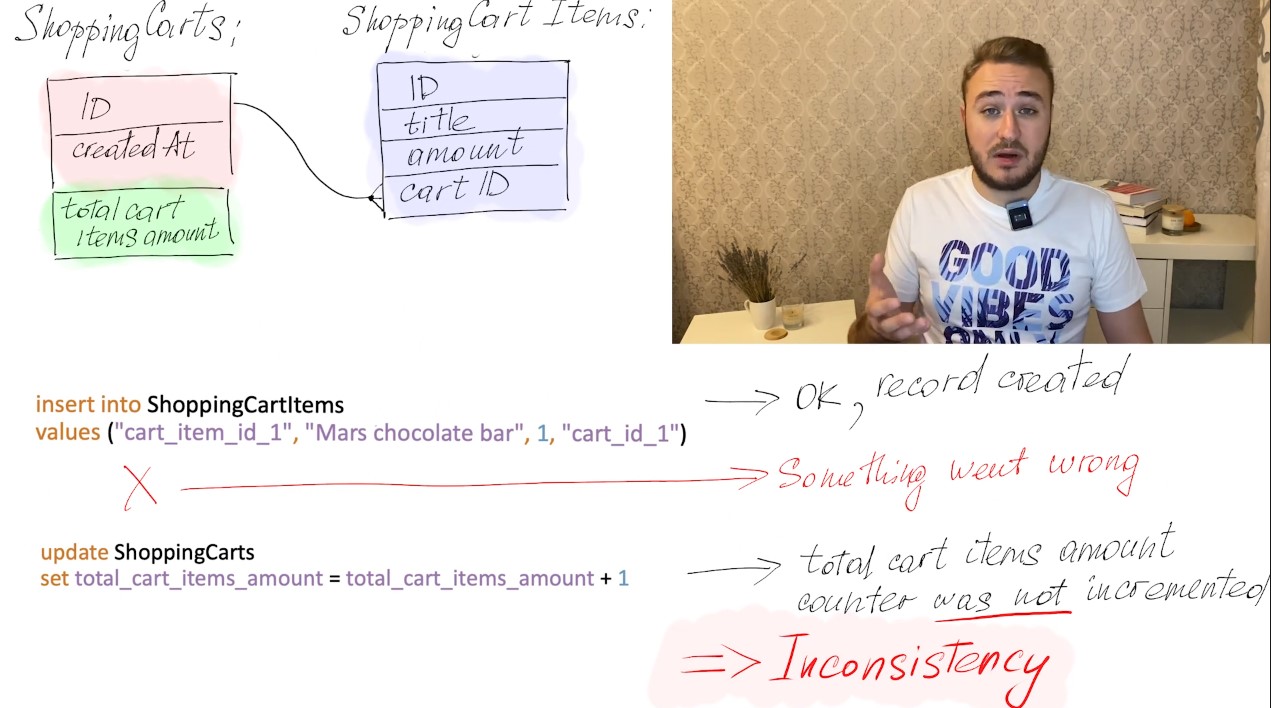 ShoppingCarts:
ShoppingCart Items:
ID
created At
total cart
items amount
ID
title
amount
cart ID
GOOD
VIBES
insert into ShoppingCartItems
values ("cart_item_id_1", "Mars chocolate bar", 1, "cart_id_1")
→ OK, record created
X → Something went wrong
update ShoppingCarts
set total_cart_items_amount = total_cart_items_amount + 1
→ total cart items amount
counter was not incremented
=> Inconsistency